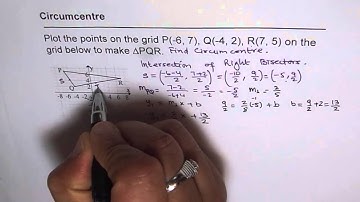 Circumcentre
Plot the points on the grid P(-6, 7), Q(-4, 2), R(7, 5) on the
grid below to make ΔPQR. Find Circumcentre.
Intersection of Right Bisectors.
S = (-6-4/2, 7+2/2) = (-10/2, 9/2) = (-5, 9/2)
m_PQ = 7-2/-6+4 = 5/-2 = -5/2 m_⊥ = 2/5
y = m x + b 9/2 = 2/5(-5) + b b = 9/2 + 2 = 13/2
x + 13/2
P
S
Q
R
-8 -6 -4 -2